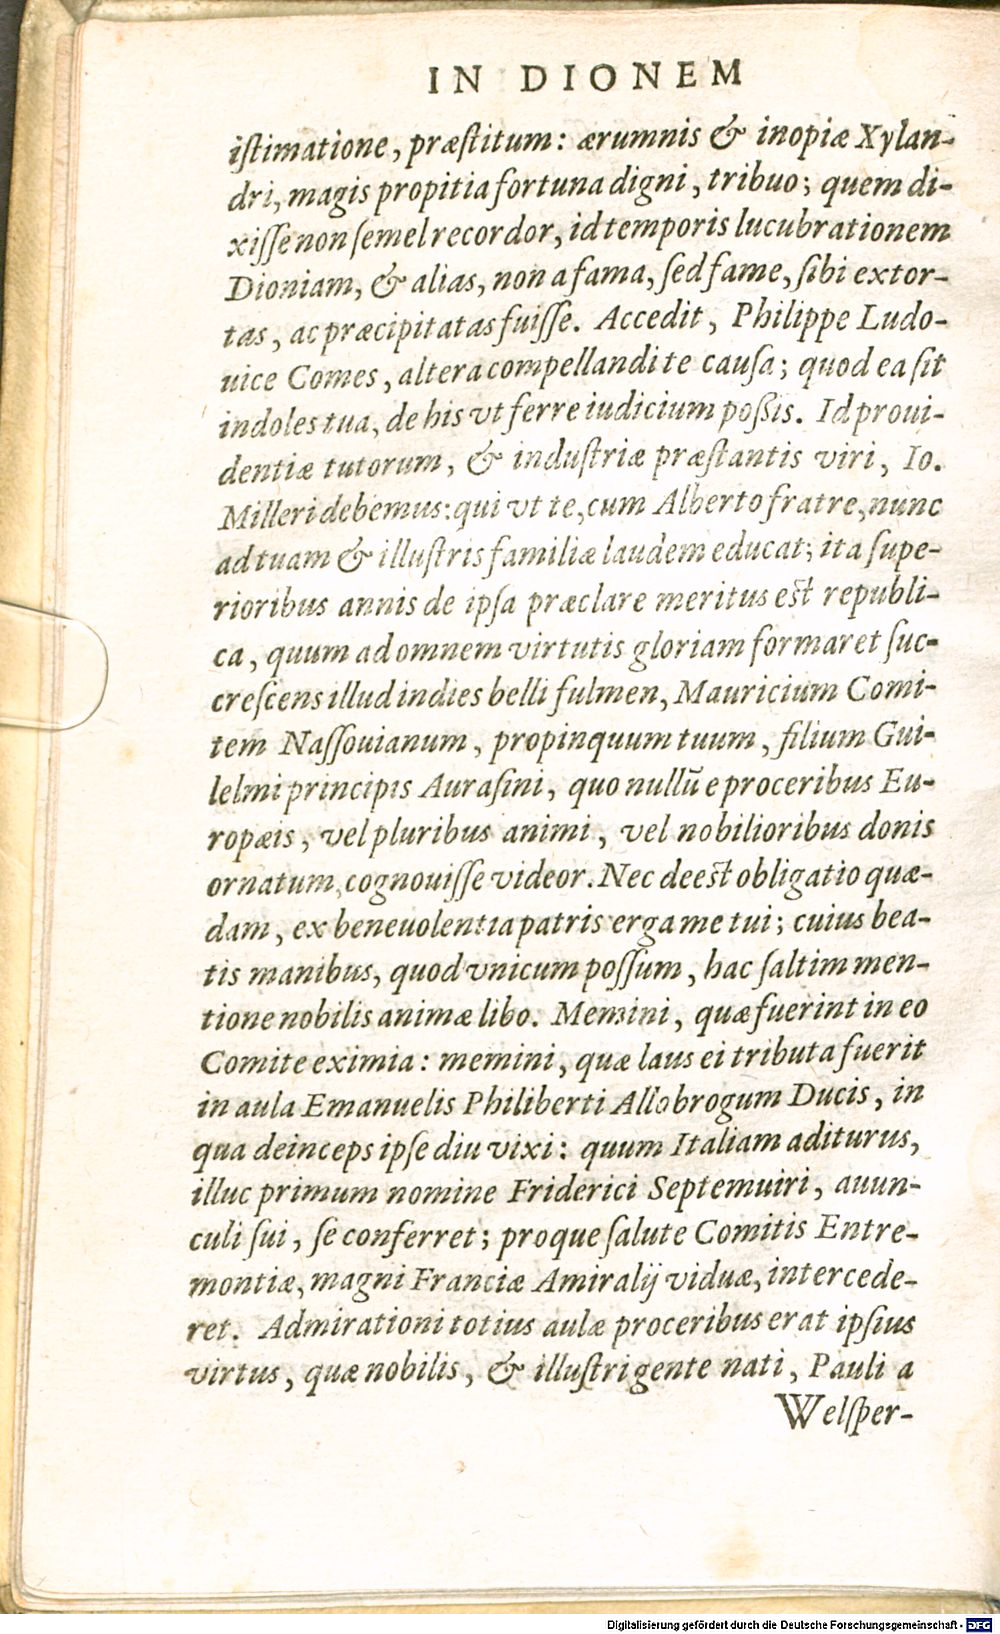 IN DIONEM
istimatione, præstitum: ærumnis & inopiæ Xylan-
dri, magis propitia fortuna digni, tribuo; quem di-
xiſſe non ſemel recordor, id temporis lucubrationem
Dioniam, & alias, non a fama, ſed fame, ſibi extor-
tas, ac præcipitatas fuiſſe. Accedit, Philippe Ludo-
uice Comes, altera compellandi te cauſa; quod ea ſit
indoles tua, de his vt ferre iudicium poſsis. Id proui-
dentiæ tutorum, & induſtriæ præſtantis viri, Io.
Milleri debemus: qui vt te, cum Alberto fratre, nunc
ad tuam & illuſtris familiæ laudem educat; ita ſupe-
rioribus annis de ipſa præclare meritus est republi-
ca, quum ad omnem virtutis gloriam formaret ſuc-
creſcens illud indies belli fulmen, Mauricium Comi-
tem Naſſouianum, propinquum tuum, filium Gui-
lelmi principis Auraſini, quo nullū e proceribus Eu-
ropæis, vel pluribus animi, vel nobilioribus donis
ornatum, cognouiſſe videor. Nec deest obligatio quæ-
dam, ex beneuolentia patris erga me tui; cuius bea-
tis manibus, quod vnicum poſſum, hac ſaltim men-
tione nobilis animæ libo. Memini, quæ fuerint in eo
Comite eximia: memini, quæ laus ei tributa fuerit
in aula Emanuelis Philiberti Allobrogum Ducis, in
qua deinceps ipſe diu vixi: quum Italiam aditurus,
illuc primum nomine Friderici Septemuiri, auun-
culi ſui, ſe conferret; proque ſalute Comitis Entre-
montiæ, magni Franciæ Amiralij viduæ, intercede-
ret. Admirationi totius aulæ proceribus erat ipſius
virtus, quæ nobilis, & illuſtri gente nati, Pauli a
Welſper-
Digitalisierung gefördert durch die Deutsche Forschungsgemeinschaft - DFG